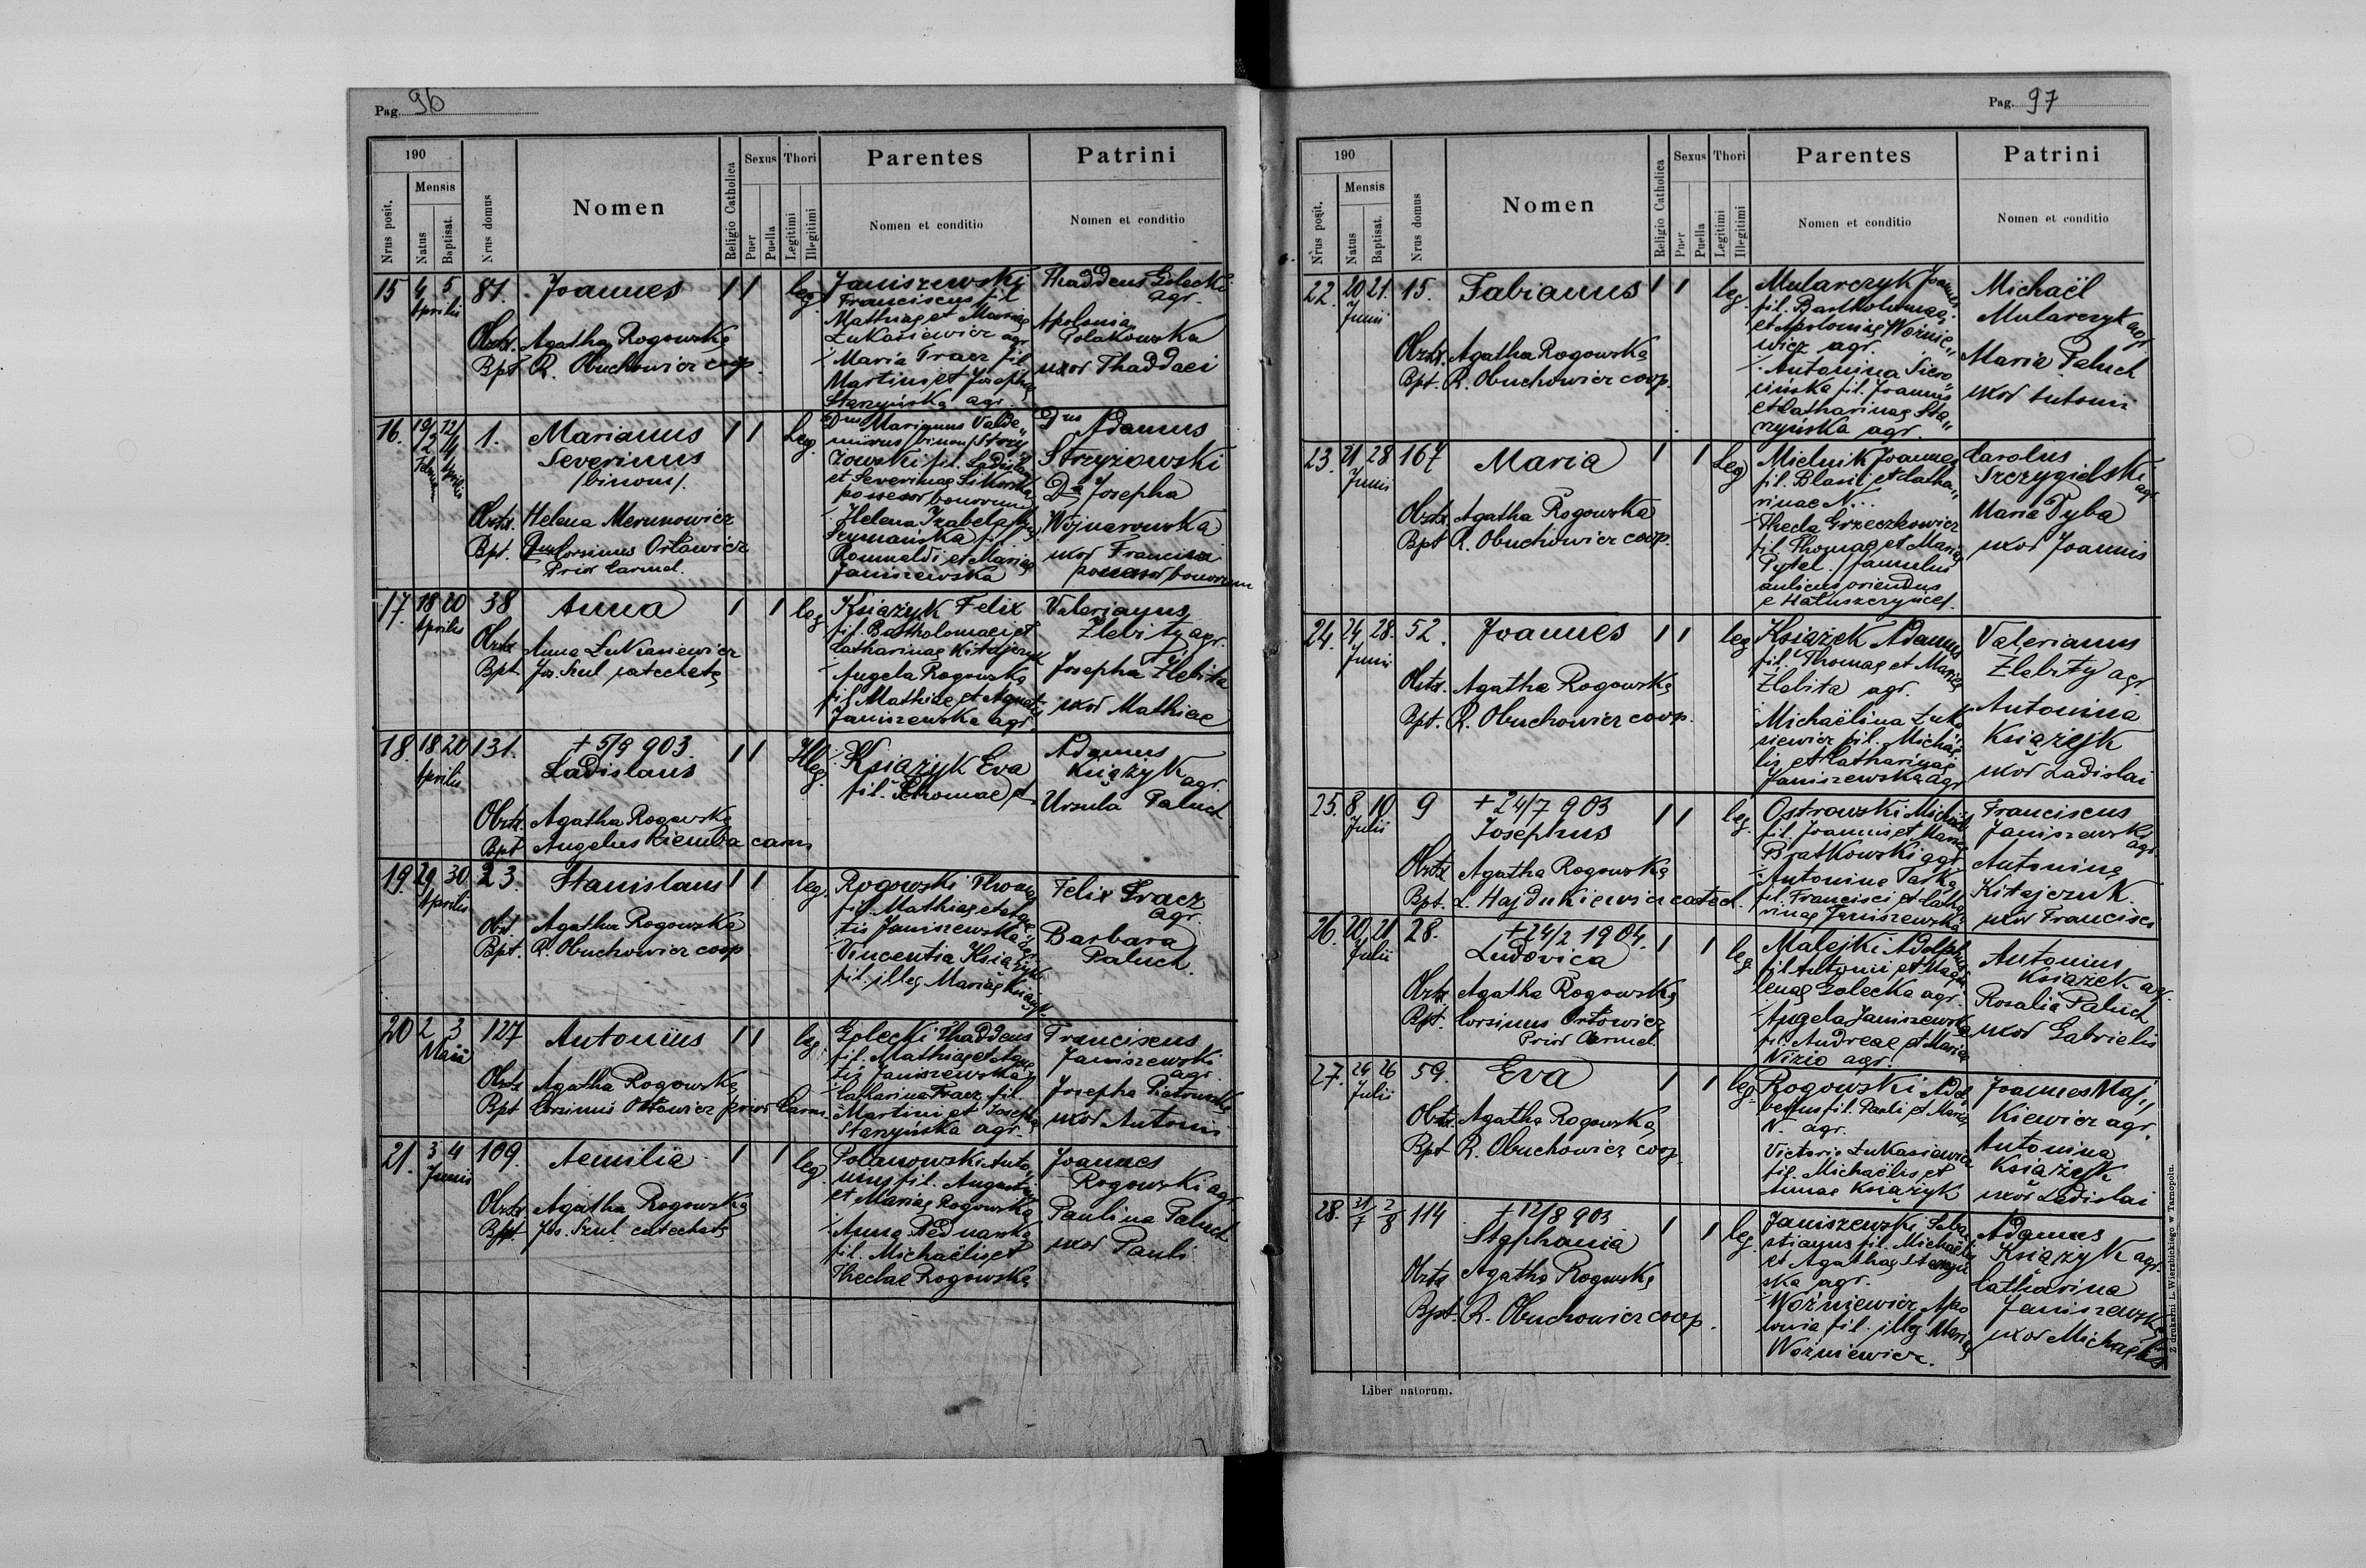 Pag. 96
190
Mensis
Nrus posit.
Natus
Baptisat.
Nrus domus
Nomen
Religio Catholica
Sexus
Puer
Puella
Thori
Legitimi
Illegitimi
Parentes
Nomen et conditio
Patrini
Nomen et conditio
15 4 5 Aprilis 81. Joannes 1 1 leg.
Obstr. Agatha Rogowska
Bpt R. Obuchowicz coop.
Janiszewski
Franciscus fil
Mathiae et Mariae
Łukasiewicz agr
Maria Tracz fil
Martini et Josephae
Starzyńska agr.
Thaddeus Golecki
agr.
Apolonia
Polakowska
uxor Thaddaei
16. 19/2 12/4 Aprilis 1. Marianus 1 1 Leg.
Severinus
/binom/.
Obstr. Helena Merunowicz
Bpt. Corsinus Orłowicz
Prior Carmel.
Dnus Marianus Valde„
mirus /binom/ Strzy
żowski fil. Ladislai
et Severinae Sikorska
possessor bonorum
Helena Izabela
Szymańska fil
Romualdi et Mariae
Janiszewska
Dnus Adamus
Strzyżowski
Da Josepha
Wojnarowska
uxor Francisci
possessor bonorum
17. 18 20 Aprilis 38 Anna 1 1 leg.
Obstr Anna Łukasiewicz
Bpt Jos. Szul catecheta
Książyk Felix
fil. Bartholomaei et
Catharinae Kitajczuk
Angela Rogowska
fil Mathiae et Agnetis
Janiszewska agr.
Valerianus
Żlebity agr.
Josepha Żlebita
uxor Mathiae
18. 18 20 Aprilis 131. + 5/9 903. 1 1 Illeg.
Ladislaus
Obstr. Agatha Rogowska
Bpt Angelus Ziemba carm
Książyk Eva
fil. Thomae et
Adamus
Książyk
agr.
Ursula Paluch
19. 29 30 Aprilis 23. Stanislaus 1 1 leg.
Obst. Agatha Rogowska
Bpt. R. Obuchowicz coop
Rogowski Thomas
fil. Mathiae et Agne
tis Janiszewska agr.
Vincentia Książyk
fil. illeg Mariae Książyk.
Felix Tracz
agr.
Barbara
Paluch.
20 2 3 Maii 127 Antonius 1 1 leg.
Obstr Agatha Rogowska
Bpt Corsinus Orłowicz prior Carm.
Golecki Thaddeus
fil. Mathiae et Agne
tis Janiszewska
Catharina Tracz fil.
Martini et Josepha
Starzyńska agr.
Franciscus
Janiszewski
agr.
Josepha Pietruszka
uxor Antonii
21. 3 4 Junii 109. Aemilia 1 1 leg.
Obstr Agatha Rogowska
Bpt. Jos. Szul catecheta
Polanowski Anto„
nius fil. Augustini
et Mariae Rogowska
Anna Bednarska
fil. Michaëlis et
Theclae Rogowska
Joannes
Rogowski agr
Paulina Paluch
uxor Pauli
Pag. 97
190
Mensis
Nrus posit.
Natus
Baptisat.
Nrus domus
Nomen
Religio Catholica
Sexus
Puer
Puella
Thori
Legitimi
Illegitimi
Parentes
Nomen et conditio
Patrini
Nomen et conditio
22. 20 21. Junii 15. Fabianus 1 1 leg.
Obstr. Agatha Rogowska
Bpt. R. Obuchowicz coop.
Mularczyk Joannes
fil. Bartholomaei
et Apoloniae Woźnie„
wicz agr.
Antonina Siero„
cińska fil. Joannis
et Catharinae Sta„
rzyńska agr.
Michaël
Mularczyk agr
Maria Paluch
uxor Antonii
23. 21 28 Junii 167 Maria 1 1 Leg
Obstr Agatha Rogowska
Bpt R. Obuchowicz coop.
Mielnik Joannes
fil. Blasii et Catha„
rinae N.
Thecla Grzeczkowicz
fil. Thomae et Mariae
Pytel. /famulus
aulicus oriendus
e Hałuszczyńce/.
Carolus
Szczygielski
agr
Maria Dyba
uxor Joannis
24. 24 28. Junii 52. Joannes 1 1 leg
Obstr. Agatha Rogowska
Bpt. R. Obuchowicz coop.
Książek Adamus
fil. Thomae et Mariae
Żlebita agr.
Michaëlina Łuka
siewicz fil. Michaë
lis et Catharinae
Janiszewska agr
Valerianus
Żlebity agr.
Antonina
Książek
uxor Ladislai
25. 8 10 Julii 9 + 24/7 903 1 1 leg.
Josephus
Obstr Agatha Rogowska
Bpt. L. Hajdukiewicz catech.
Ostrowski Michaël
fil. Joannis et Mariae
Bratkowski agr
Antonina
fil. Francisci et Catha
rinae Janiszewska
Franciscus
Janiszewski
agr.
Antonina
Kitajczuk.
uxor Francisci
26. 20 21 Julii 28. + 24/2 1904. 1 1 leg
Ludovica
Obstr Agatha Rogowska
Bpt. Corsinus Orłowicz
Prior Carmel.
Malejki Adolphus
fil Antonii et Magda
lenae Golecka agr.
Angela Janiszewska
fil. Andreae et Mariae
Nizio agr.
Antonius
Książek agr.
Rosalia Paluch
uxor Gabrielis
27. 24 26 Julii 59. Eva 1 1 leg.
Obstr. Agatha Rogowska
Bpt R. Obuchowicz coop.
Rogowski Adal
bertus fil. Pauli et Mariae
N. agr.
Victoria Łukasiewicz
fil. Michaëlis et
Annae Książyk
Joannes Maj„
kiewicz agr.
Antonina
Książyk
uxor Ladislai
28. 31/7 2/8 114 + 12/8 903 1 1 leg
Stephania
Obstr Agatha Rogowska
Bpt. R. Obuchowicz coop.
Janiszewski Seba
stianus fil. Michaëlis
et Agathae Starzyń
ska agr.
Woźniewicz Apo
lonia fil. illeg Mariae
Woźniewicz.
Adamus
Książyk agr.
Catharina
Janiszewska
uxor Michaëlis
Liber natorum.
Z drukarni L. Wierzbickiego w Tarnopolu.